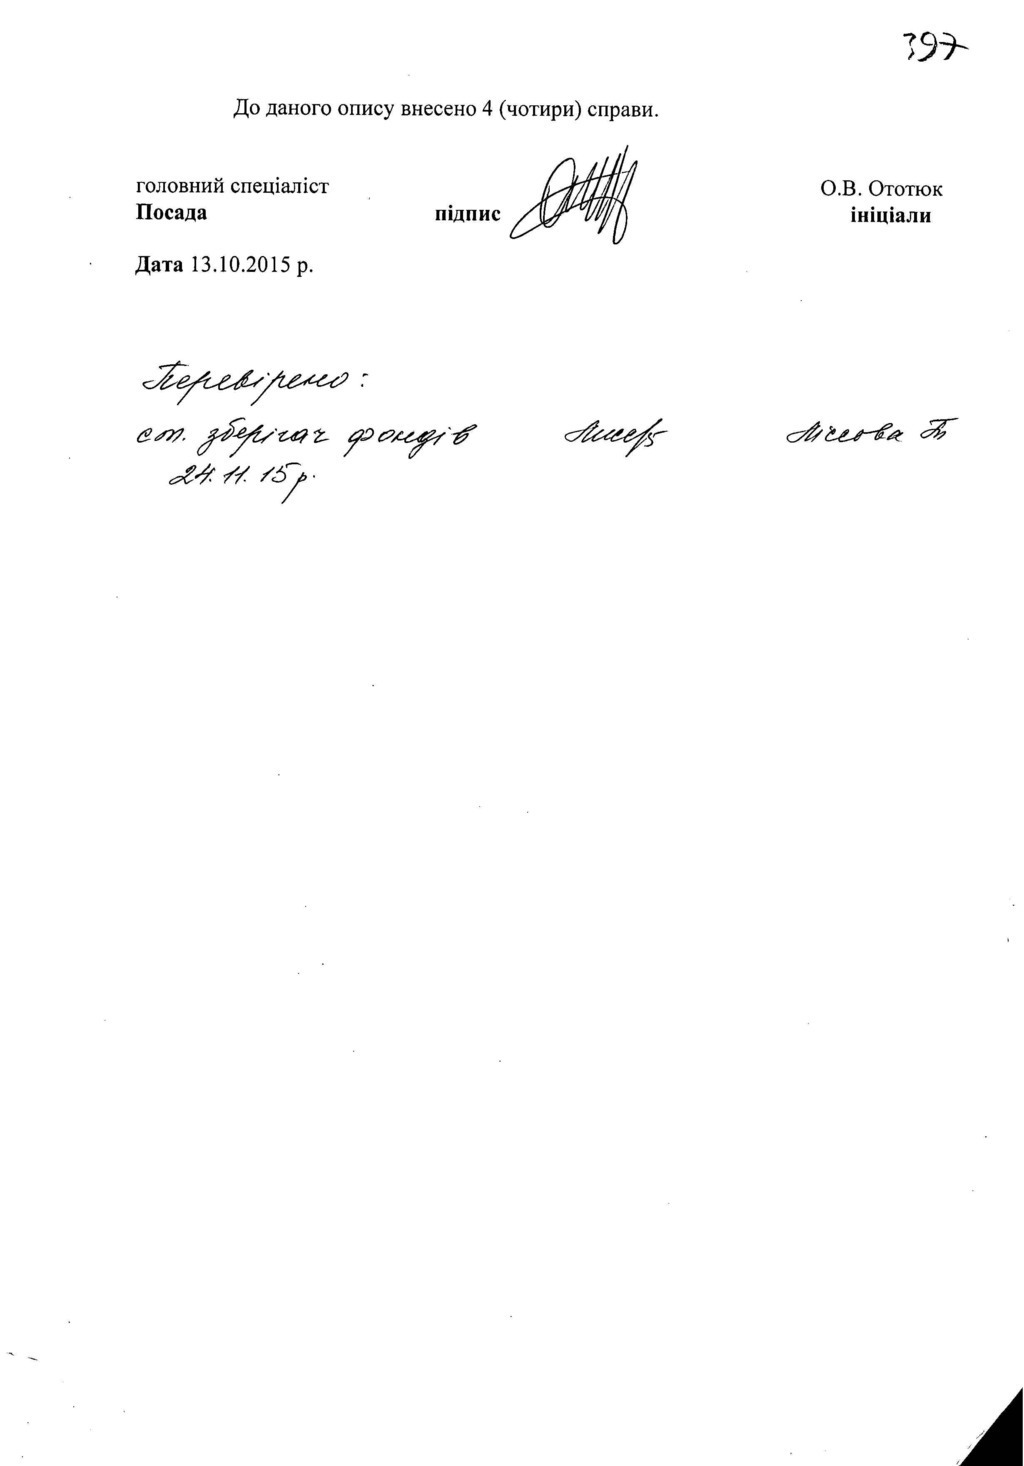 397
До даного опису внесено 4 (чотири) справи.
головний спеціаліст О.В. Ототюк
Посада підпис ініціали
Дата 13.10.2015 р.
Перевірено :
ст. зберігач фондів
24.11.15р.